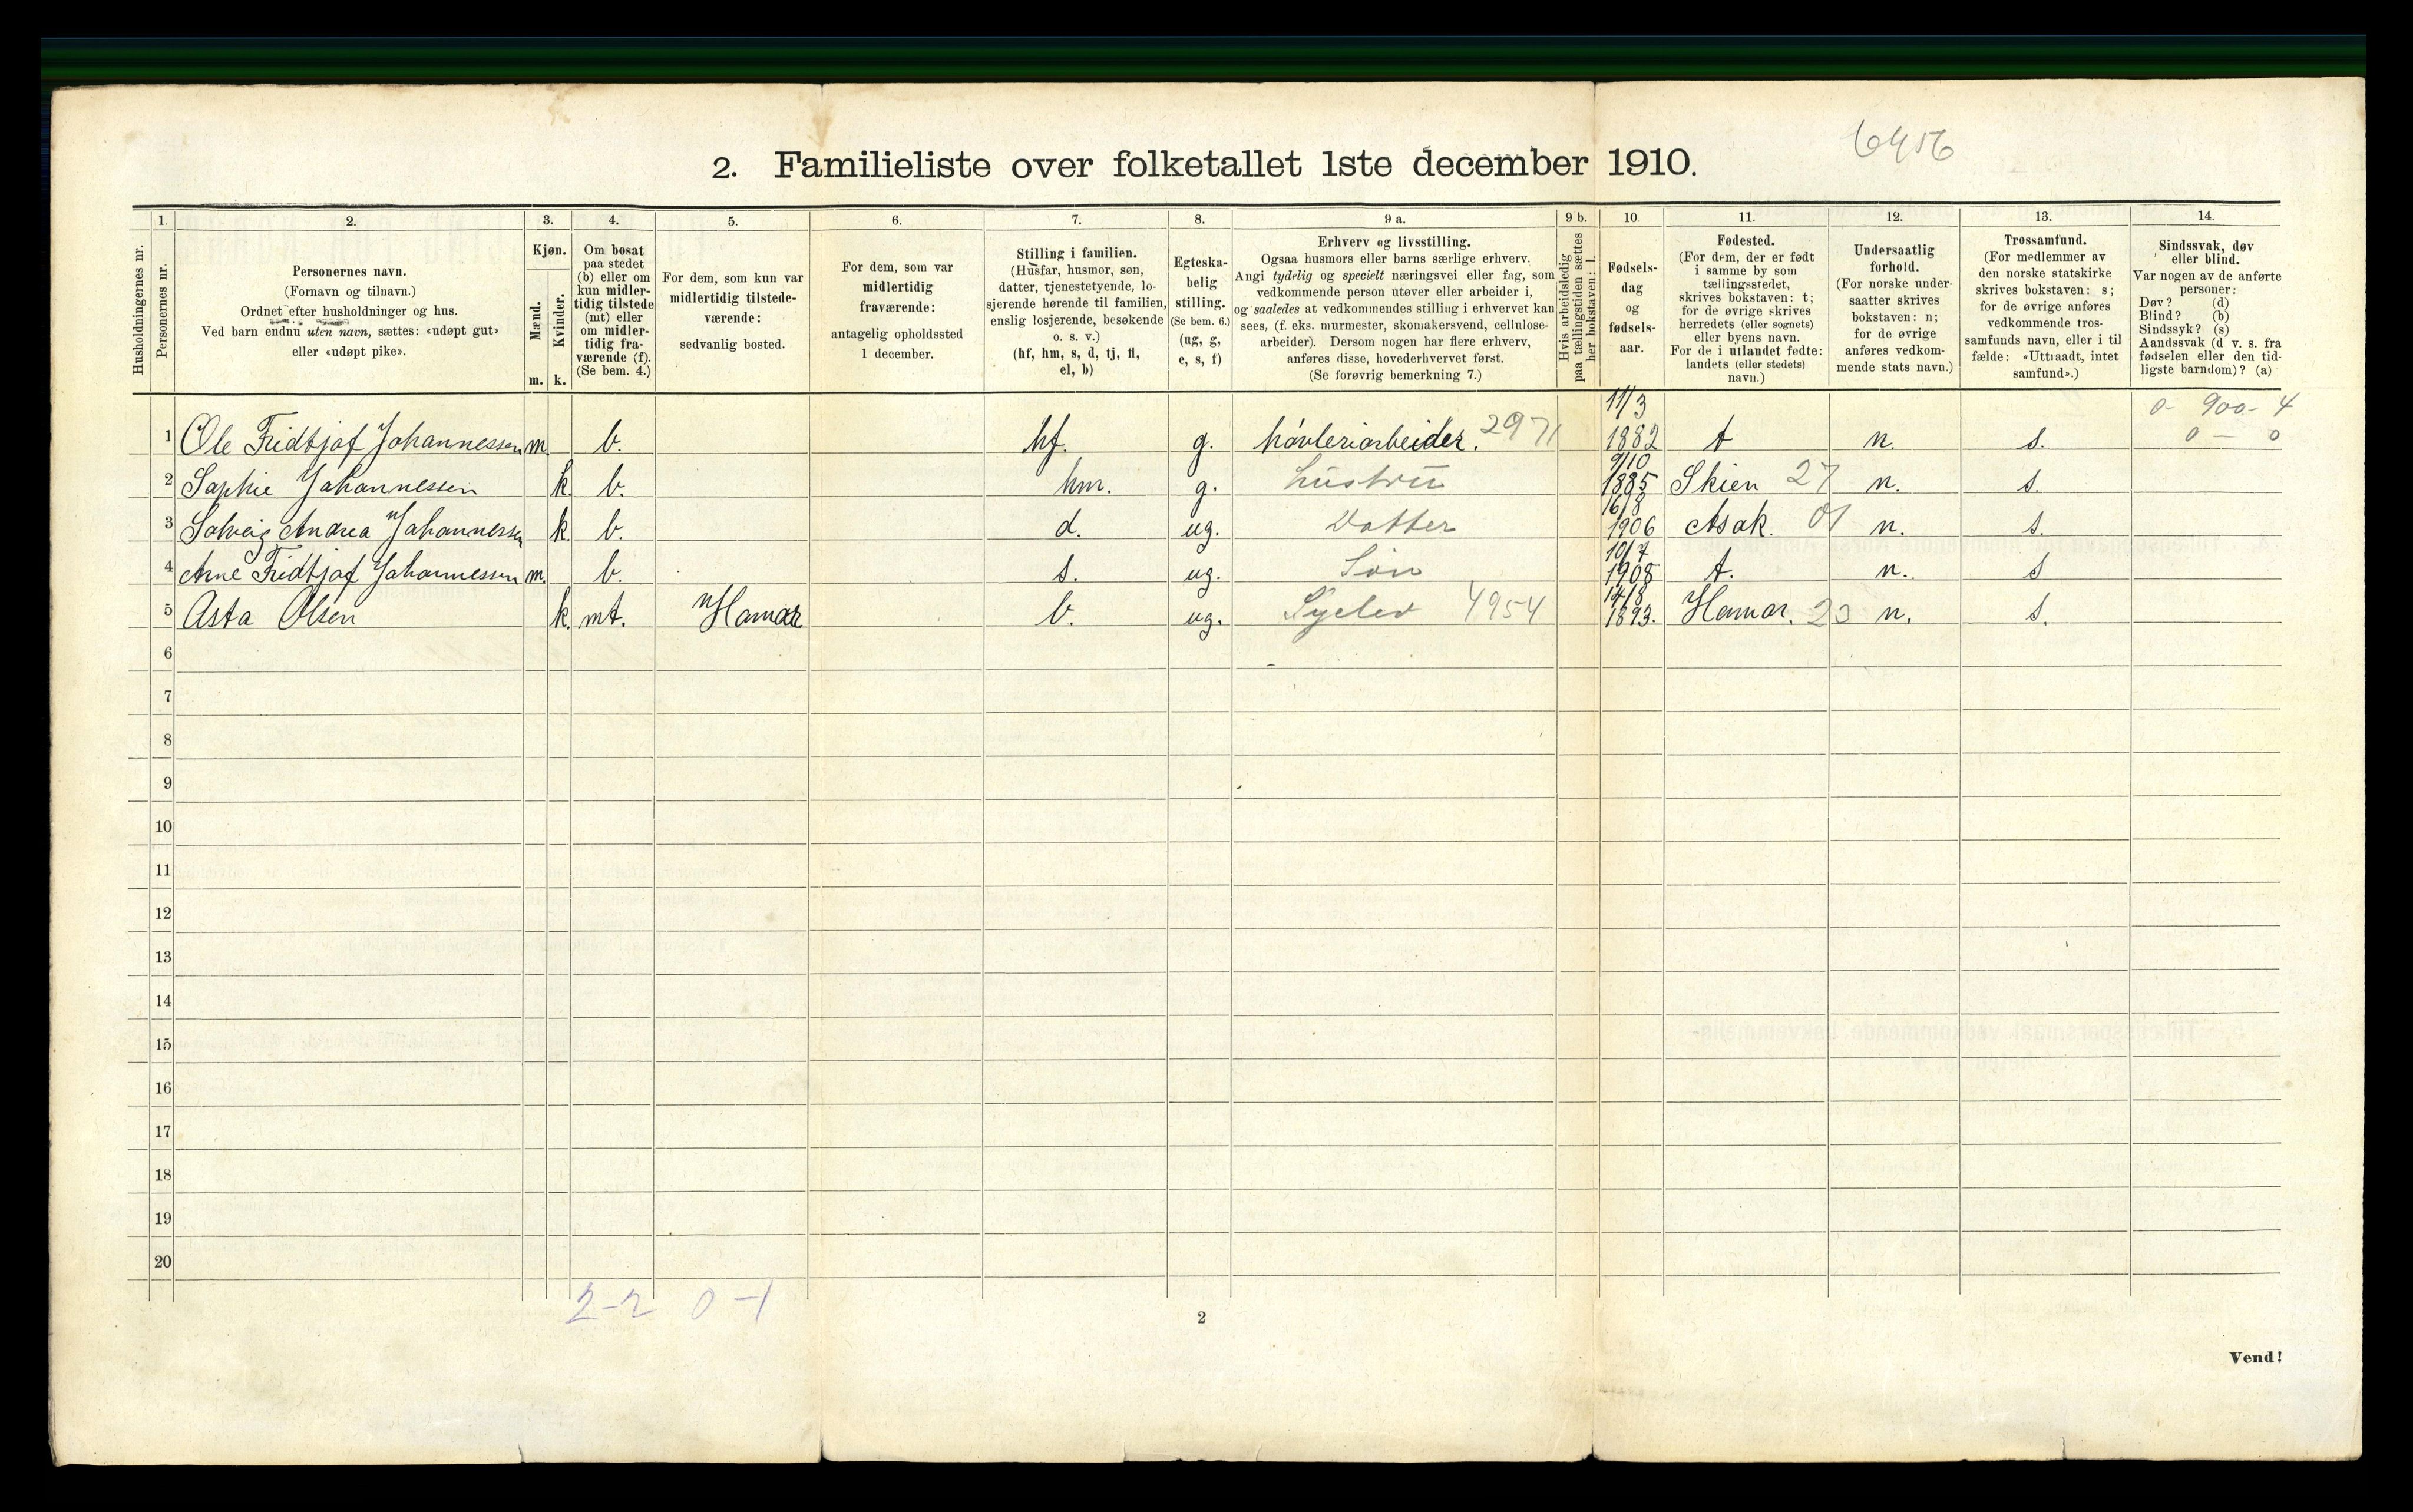 6456
2. Familieliste over folketallet 1ste december 1910.
1. 2. 3. 4. 5. 6. 7. 8. 9 a. 9 b. 10. 11. 12. 13. 14.
Husholdningernes nr.
Personernes nr.
Personernes navn.
(Fornavn og tilnavn.)
Ordnet efter husholdninger og hus.
Ved barn endnu uten navn, sættes: «udøpt gut»
eller «udøpt pike».
Kjøn.
Mænd.
Kvinder.
m. k.
Om bosat
paa stedet
(b) eller om
kun midler-
tidig tilstede
(mt) eller
om midler-
tidig fra-
værende (f).
(Se bem. 4.)
For dem, som kun var
midlertidig tilstede-
værende:
sedvanlig bosted.
For dem, som var
midlertidig
fraværende:
antagelig opholdssted
1 december.
Stilling i familien.
(Husfar, husmor, søn,
datter, tjenestetyende, lo-
sjerende hørende til familien,
enslig losjerende, besøkende
o. s. v.)
(hf, hm, s, d, tj, fl,
el, b)
Egteska-
belig
stilling.
(Se bem. 6.)
(ug, g,
e, s, f)
Erhverv og livsstilling.
Ogsaa husmors eller barns særlige erhverv.
Angi tydelig og specielt næringsvei eller fag, som
vedkommende person utøver eller arbeider i,
og saaledes at vedkommendes stilling i erhvervet kan
sees, (f. eks. murmester, skomakersvend, cellulose-
arbeider). Dersom nogen har flere erhverv,
anføres disse, hovederhvervet først.
(Se forøvrig bemerkning 7.)
Hvis arbeidsledig
paa tællingstiden sættes
her bokstaven: l.
Fødsels-
dag
og
fødsels-
aar.
Fødested.
(For dem, der er født
i samme by som
tællingsstedet,
skrives bokstaven: t;
for de øvrige skrives
herredets (eller sognets)
eller byens navn.
For de i utlandet fødte:
landets (eller stedets)
navn.)
Undersaatlig
forhold.
(For norske under-
saatter skrives
bokstaven: n;
for de øvrige
anføres vedkom-
mende stats navn.)
Trossamfund.
(For medlemmer av
den norske statskirke
skrives bokstaven: s;
for de øvrige anføres
vedkommende tros-
samfunds navn, eller i til
fælde: «Uttraadt, intet
samfund».)
Sindssvak, døv
eller blind.
Var nogen av de anførte
personer:
Døv? (d)
Blind? (b)
Sindssyk? (s)
Aandssvak (d v. s. fra
fødselen eller den tid-
ligste barndom)? (a)
11/3 0- 900- 4
1 Ole Fridtjof Johannessen m. b. hf. g. høvleriarbeider. 2971 1882 t n. s. 0 — 0
9/10
2 Sophie Johannessen k. b. hm. g. hustru 1885 Skien 27 n. s.
16/8
3 Solveig Andrea Johannessen k. b. d. ug. Datter 1906 Asak. 01 n. s.
10/7
4 Arne Fridtjof Johannessen m. b. s. ug. Søn 1908 t. n. s
14/8
5 Asta Olsen k. mt. Hamar b. ug. Syelev 4954 1893. Hamar. 23 n. s.
6
7
8
9
10
11
12
13
14
15
16
17
18
19
20
2-2 0-1
2
Vend!